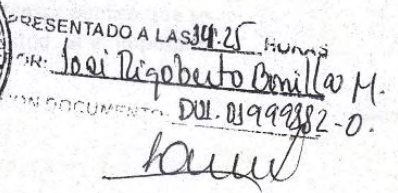 PRESENTADO A LAS 14:25 HORAS
POR: José Rigoberto Bonilla M.
CON DOCUMENTO: DUI. 01999382-0.